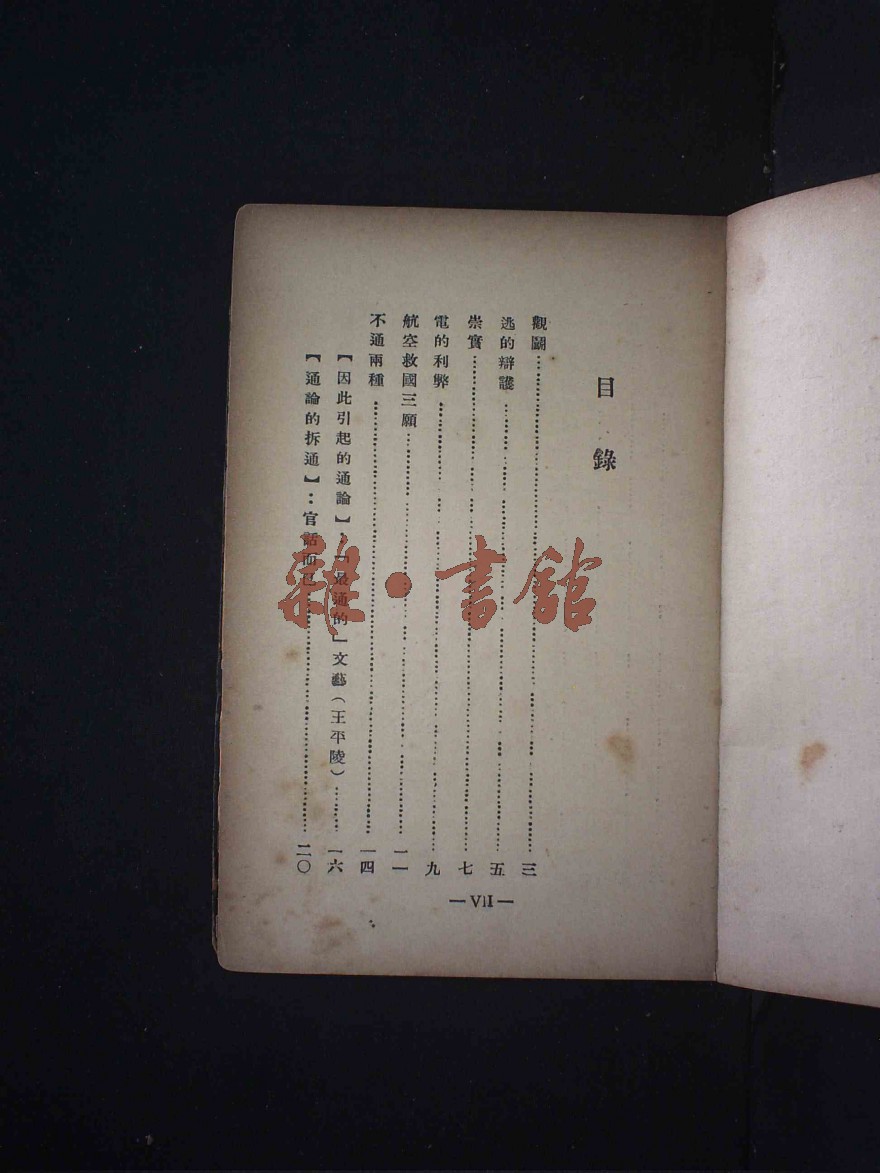 目錄
觀鬭……三
逃的辯護……五
崇實……七
電的利弊……九
航空救國三願……一一
不通兩種……一四
【因此引起的通論】：「最通的」文藝（王平陵）……一六
【通論的拆通】：官話而已……二〇
— VII —
雜·書館